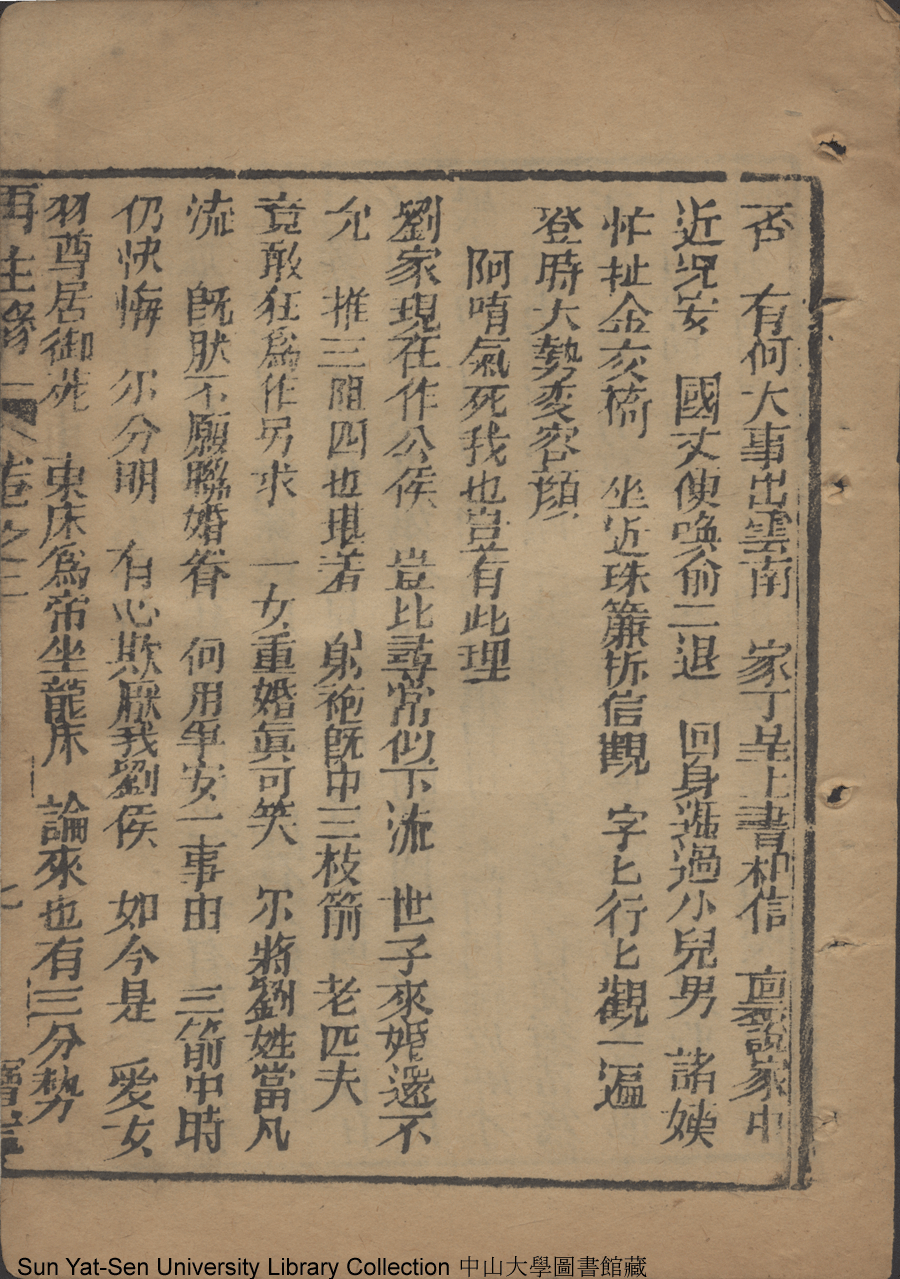 否　有何大事出雲南　家丁呈上書和信　亶說家中
近況安　國丈使喚俞二退　回身遞過小兒男　諸姨
忙扯金交椅　坐近珠簾拆信觀　字匕行匕觀一遍
登時大勢变容顔
阿唷氣死我也豈有此理
劉家現在作公侯　豈比尋常似下流　世子來婚還不
允　推三阻四也堪羞　躬袍旣中三枝箭　老匹夫
竟敢狂爲作另求　一女重婚眞可笑　尔將劉姓當凡
流　旣肰不願聯婚眷　何用爭安一事由　三箭中時
仍快悔　尔分明　有心欺厭我劉侯　如今是　愛女
羽尊居御　東床爲帝坐龍床　論來也有三分勢
再生緣　卷之三　七